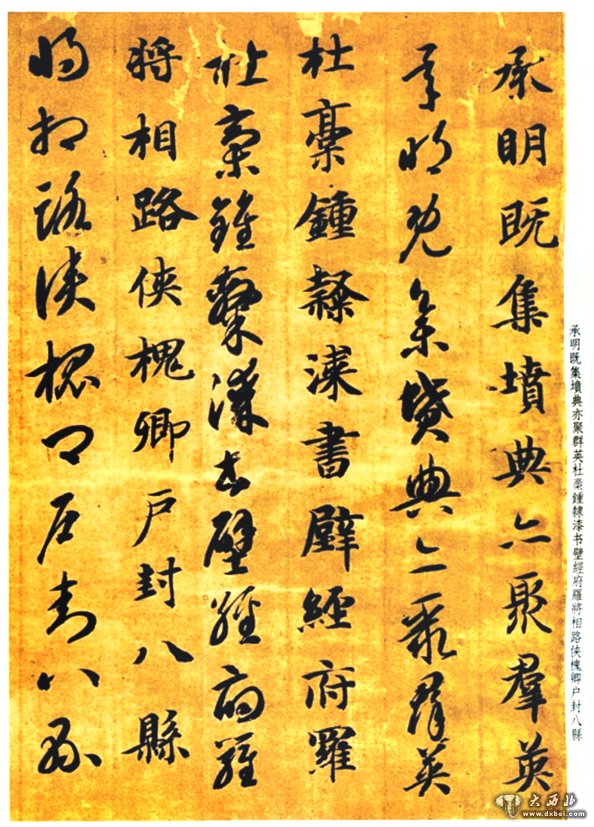 承明既集墳典亦聚羣英
承明既集墳典亦聚群英
杜稾鍾隸漆書壁經府羅
杜稾鍾隸漆書壁經府羅
將相路俠槐卿戶封八縣
將相路俠槐卿戶封八縣
承明既集墳典亦聚群英杜稾鍾隸漆书壁經府羅將相路俠槐卿户封八縣
大西北
www.dxbei.com